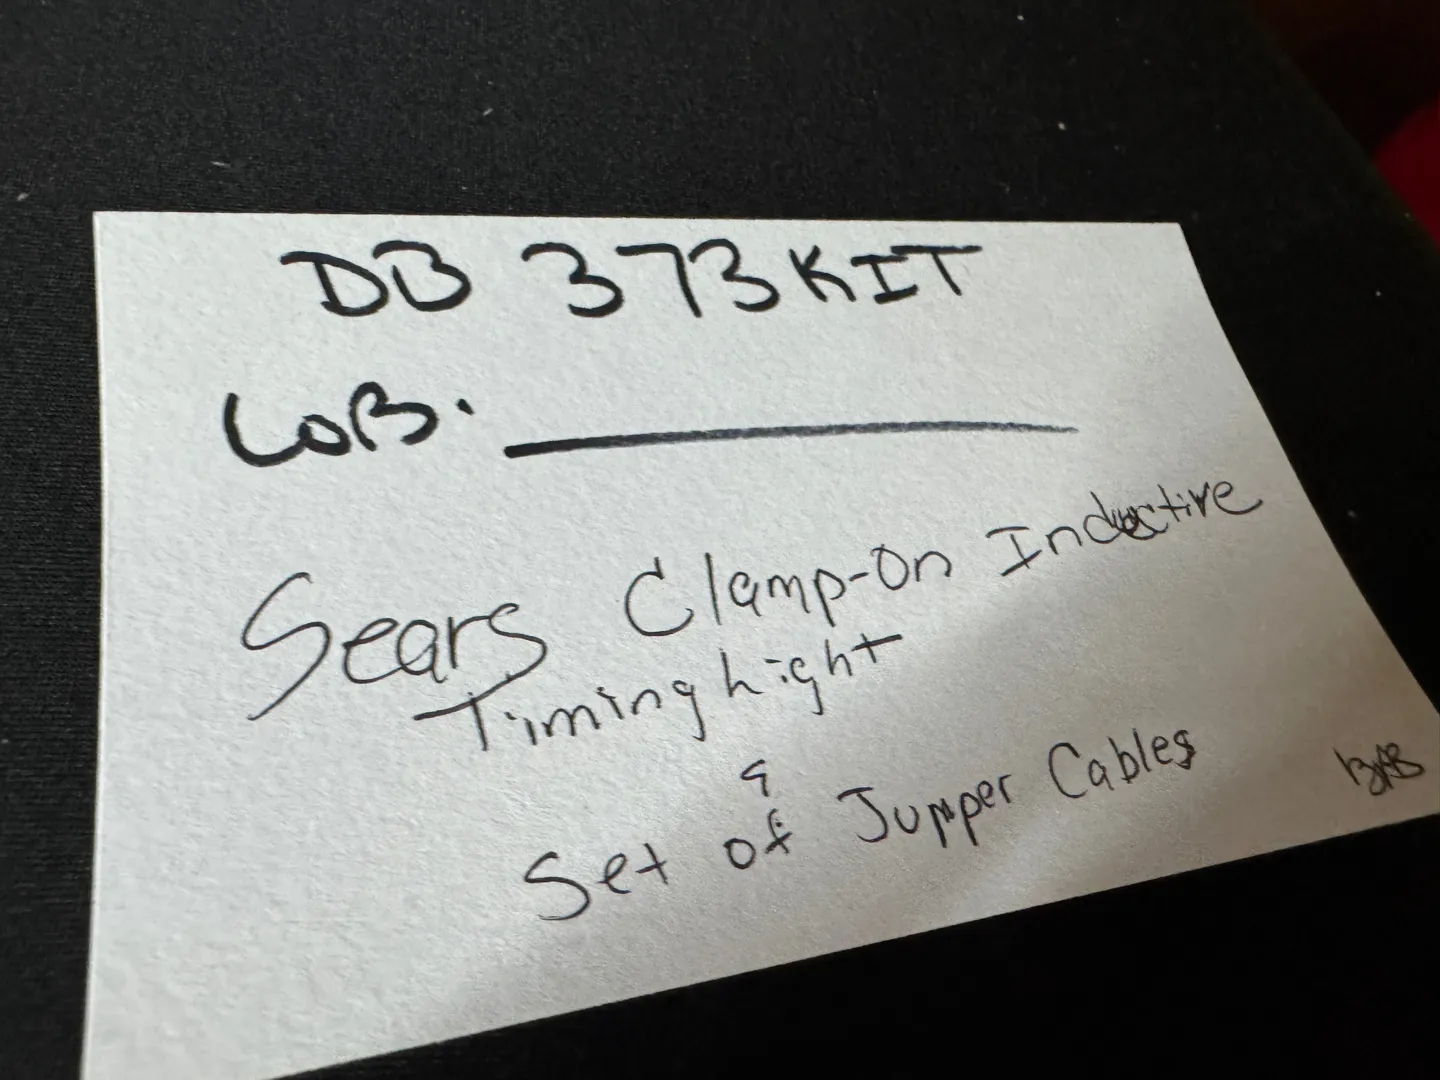 DB 373 KIT
LOB.
Sears Clamp-On Inductive
Timing Light
&
Set of Jumper Cables
BAB